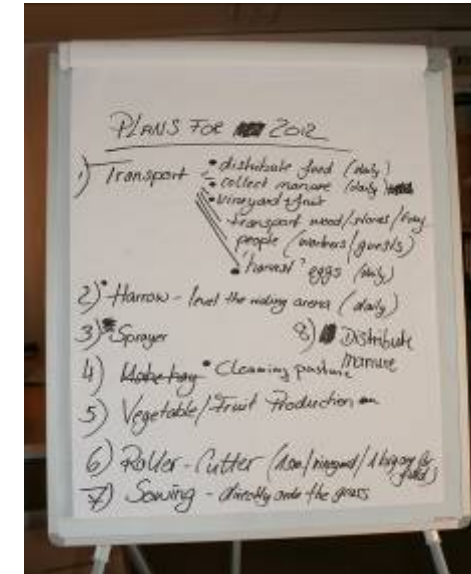 PLANS FOR 2012
1) Transport • distribute food (daily)
• collect manure (daily)
• vineyard + fruit
transport wood/stones/
people (workers/guests)
• "harvest" eggs (daily)
2) • Harrow - level the riding arena (daily)
3) • Sprayer
8) Distribute manure
4) Make hay • Cleaning pasture
5) Vegetable/Fruit Production
6) Roller-Cutter (1 vineyard/1 big one for field)
7) Sowing - directly onto the grass